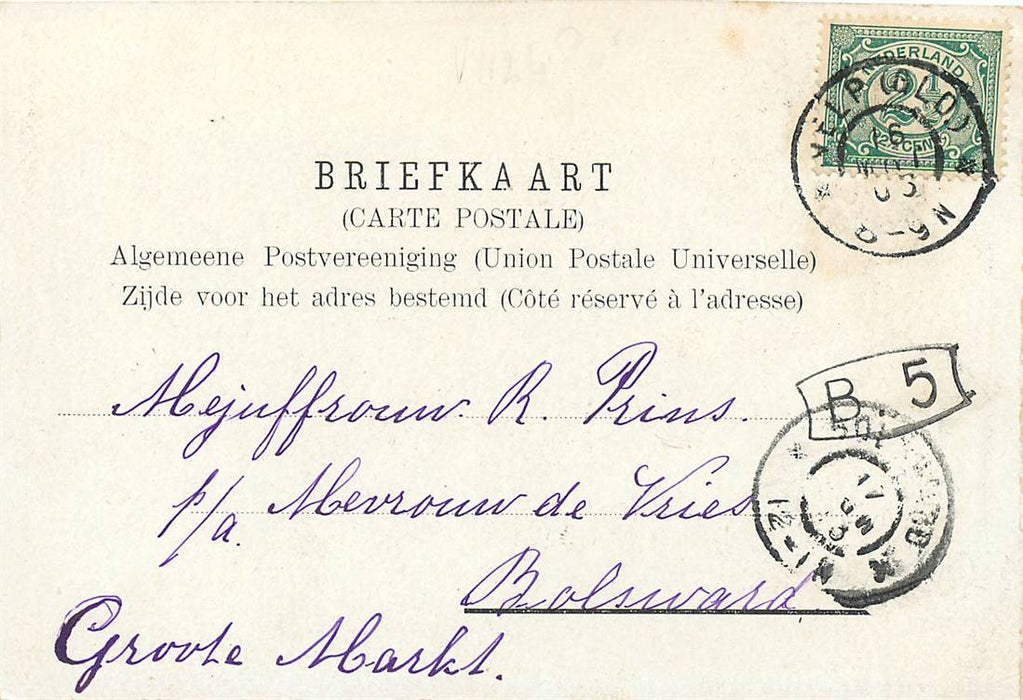 NEDERLAND
2½
(2½ CENT)
VELP (GLD)
8-9N
BRIEFKAART
(CARTE POSTALE)
Algemeene Postvereeniging (Union Postale Universelle)
Zijde voor het adres bestemd (Côté réservé à l'adresse)
B 5
Mejuffrouw R. Prins.
p/a. Mevrouw de Vries
Bolsward
Groote Markt.
12-1N